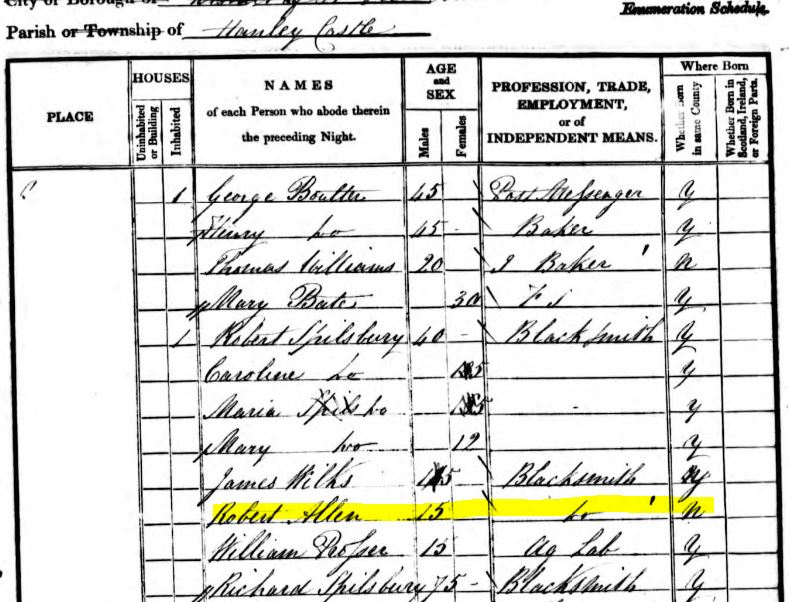 City or Borough of
Enumeration Schedule.
Parish or Township of Hanley Castle
PLACE
HOUSES
Uninhabited or Building
Inhabited
NAMES
of each Person who abode therein
the preceding Night.
AGE
and
SEX
Males
Females
PROFESSION, TRADE,
EMPLOYMENT,
or of
INDEPENDENT MEANS.
Where Born
Whether Born in same County
Whether Born in Scotland, Ireland, or Foreign Parts.
1 George Boulter 45 Post Messenger Y
Henry Do 45 - Baker Y
Thomas Williams 20 J Baker N
Mary Bate 30 F S Y
1 Robert Spilsbury 40 - Blacksmith Y
Caroline Do Y
Maria Do - Y
Mary Do 12 Y
James Wilks Blacksmith Y
Robert Allen 15 Do N
William Prosser 15 Ag Lab Y
Richard Spilsbury 75 - Blacksmith Y